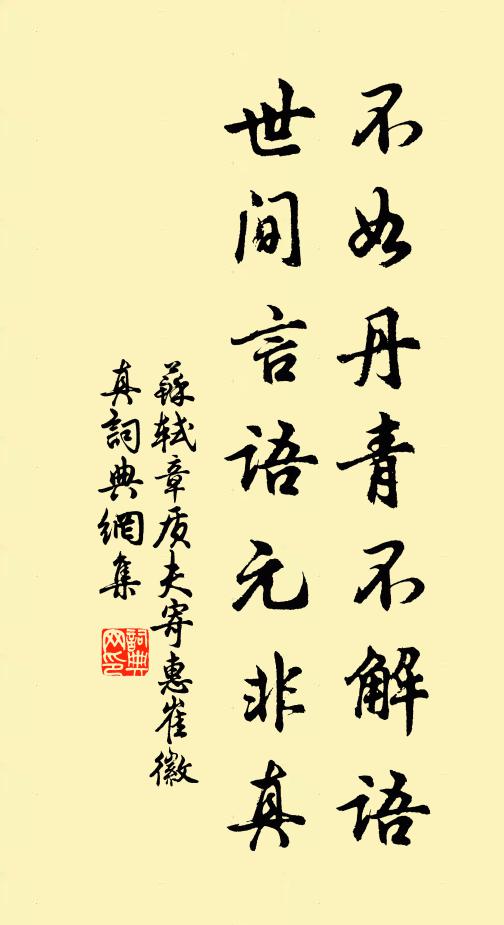 不如丹青不解语
世间言语元非真
蘇軾章质夫寄惠崔徽
真詞典網集
詞典网印